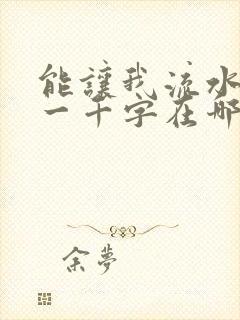 能讓我流水
一千字在那
余夢